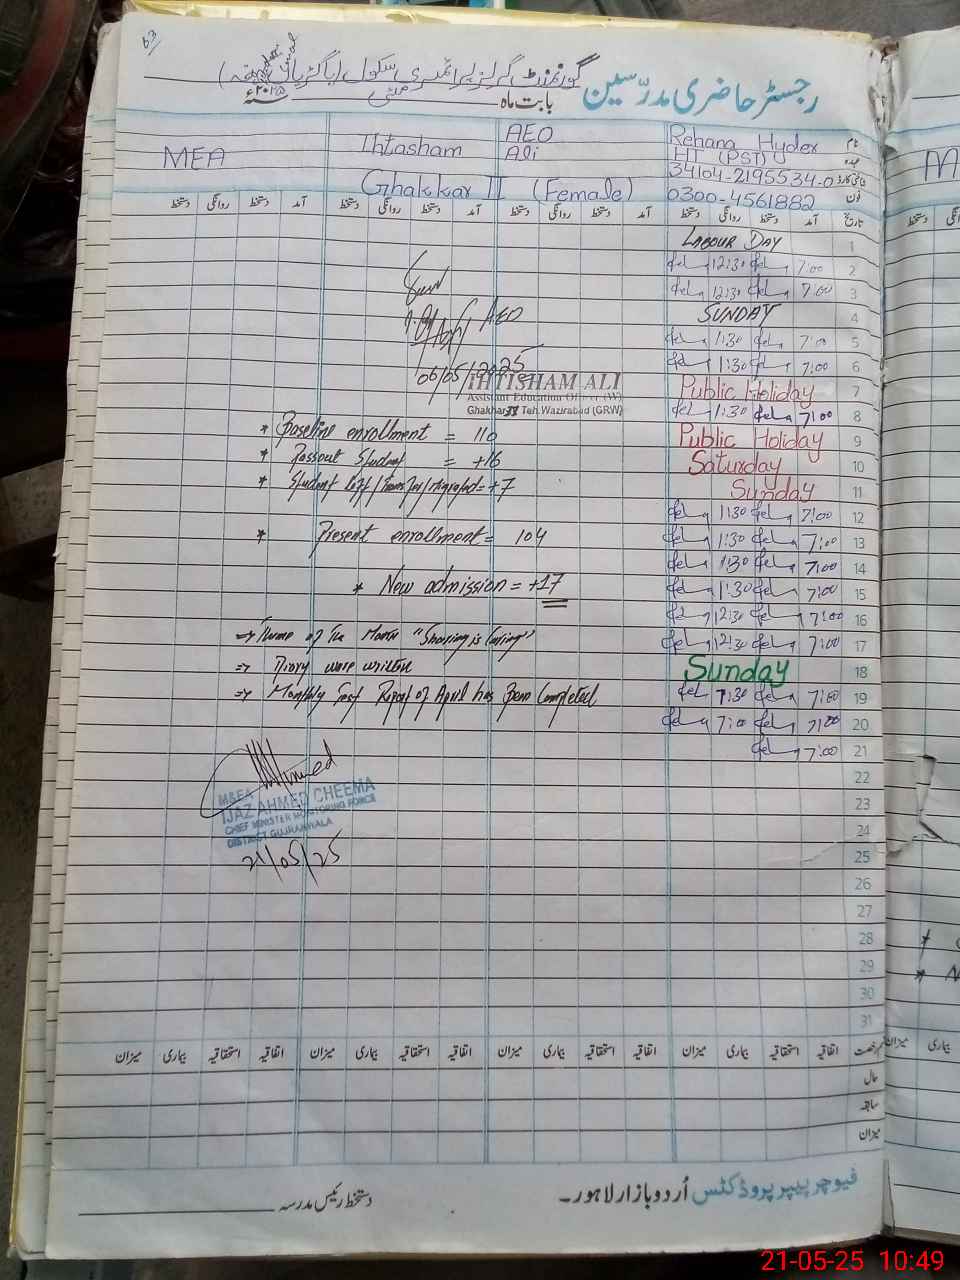 63
گورنمنٹ گرلز پرائمری سکول
رجسٹر حاضری مدرّسین
بابت ماہ مئی سنہ ۲۰۲۵ء
MEA
Ihtasham
AEO
Ali
Ghakkar II (Female)
Rehana Hyder
HT (PST)
34104-2195534-0
0300-4561882
نام
عہدہ
فون
دستخط روانگی دستخط آمد دستخط روانگی دستخط آمد دستخط روانگی دستخط آمد دستخط روانگی دستخط آمد تاریخ
LABOUR DAY 1
12:30 7:00 2
12:30 7:00 3
SUNDAY 4
1:30 7:00 5
1:30 7:00 6
Public Holiday 7
1:30 7:00 8
Public Holiday 9
Saturday 10
Sunday 11
1:30 7:00 12
1:30 7:00 13
1:30 7:00 14
1:30 7:00 15
12:30 7:00 16
12:30 7:00 17
Sunday 18
1:30 7:00 19
7:00 7:00 20
7:00 21
22
23
24
25
26
27
28
29
30
31
AEO
06/05/2025
IHTISHAM ALI
Assistant Education Officer (W)
Ghakhar II Teh. Wazirabad (GRW)
* Baseline enrollment = 110
* Passout Student = +16
* Student left/transfer/migrated = +7
* Present enrollment = 104
* New admission = +17
=> Theme of The Month "Sharing is Caring"
=> Diary were written
=> Monthly Test Report of April has Been Completed
M&EA
IJAZ AHMED CHEEMA
CHIEF MINISTER MONITORING FORCE
DISTRICT GUJRANWALA
21/05/25
میزان بیماری استحقاقیہ اتفاقیہ میزان بیماری استحقاقیہ اتفاقیہ میزان بیماری استحقاقیہ اتفاقیہ میزان بیماری استحقاقیہ اتفاقیہ
حال
سابقہ
میزان
دستخط رئیس مدرسہ
فیوچر پیپر پروڈکٹس اُردو بازار لاہور۔
21-05-25 10:49